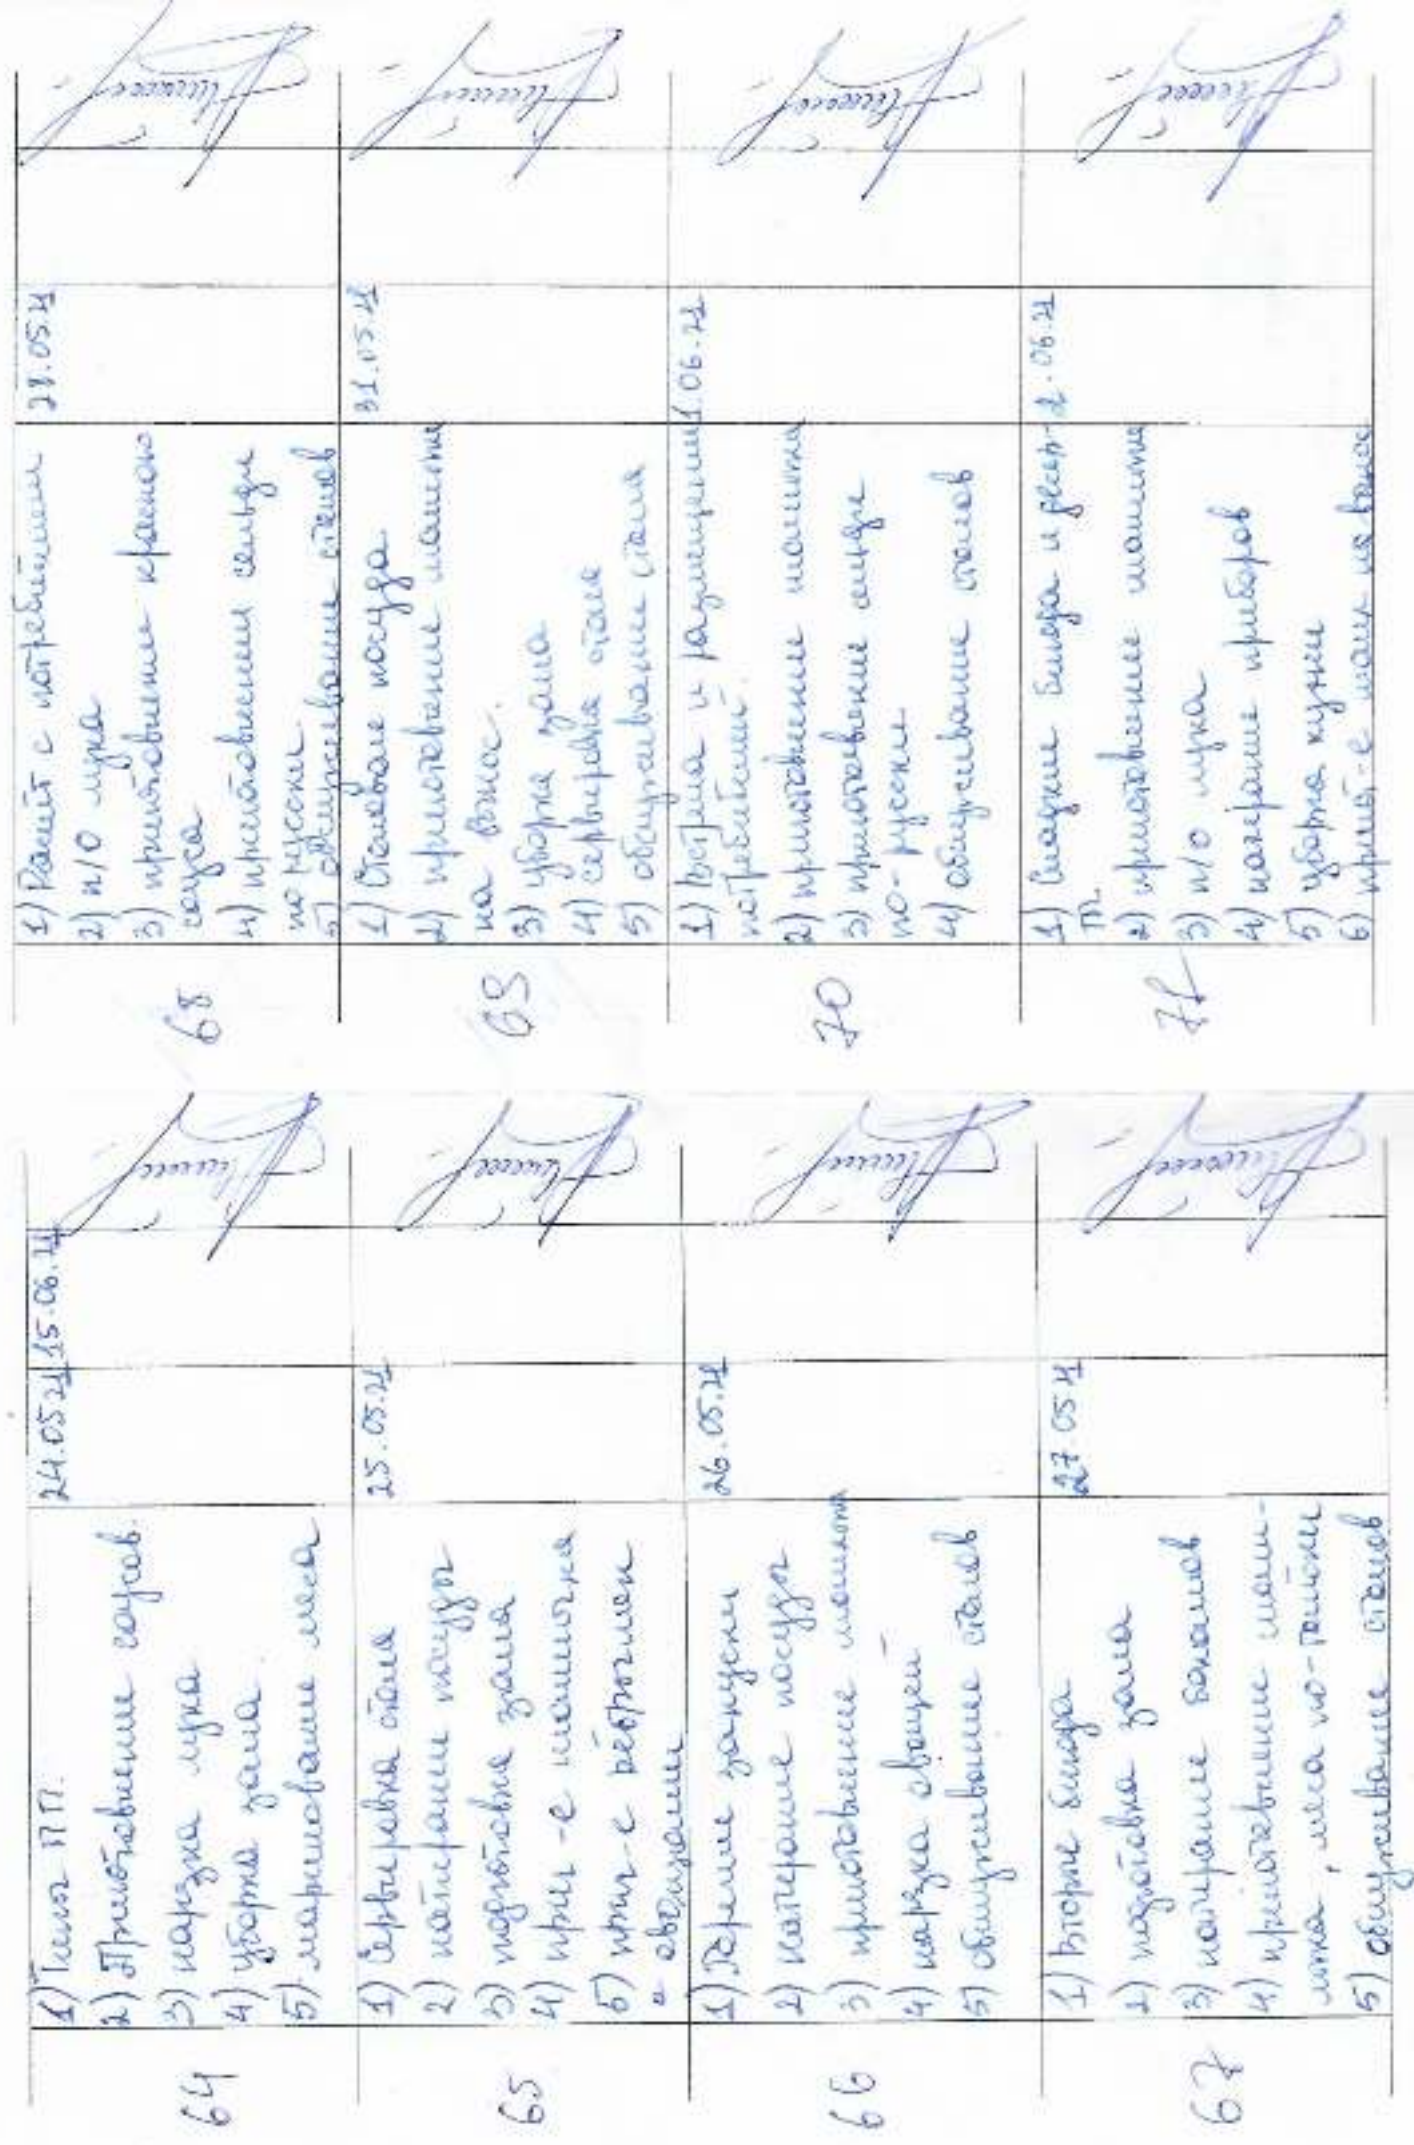 64
1) Типы ПП.
24.05.21
15.06.21
2) Приготовление соусов.
3) нарезка лука
4) уборка зала.
5) маринование мяса
65
1) Сервировка стола
25.05.21
2) натирание посуды
3) подготовка зала
4) приг-е шашлыка
5) приг-е
с овощами
66
1) Горячие закуски
26.05.21
2) натирание посуды
3) приготовление шашлыка
4) нарезка овощей
5) обслуживание столов
67
1) Вторые блюда
27.05.21
2) подготовка зала
3) натирание бокалов
4) приготовление шаш-
лыка, мяса по-тайски
5) обслуживание столов
68
1) Расчёт с потребителем
28.05.21
2) п/о лука
3) приготовление красного
соуса
4) приготовления сельди
по русски
5) обслуживание столов
69
1) Столовая посуда
31.05.21
2) приготовление шашлыка
на вынос.
3) уборка зала
4) сервировка стола
5) обслуживание стола
70
1) Встреча и размещение
1.06.21
потребителей.
2) приготовление шашлыка
3) приготовление сельди
по-русски
4) обслуживание столов
71
1) Сладкие блюда и десер-
2.06.21
ты
2) приготовление шашлыка
3) п/о лука
4) натирание приборов
5) уборка кухни
6) пригот-е шашл на вынос